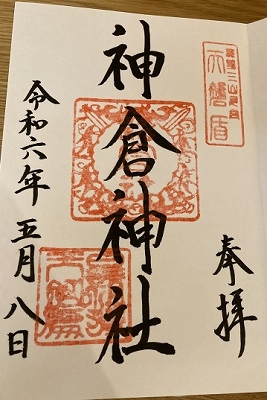 奉拝
神倉神社
令和六年 五月 八日